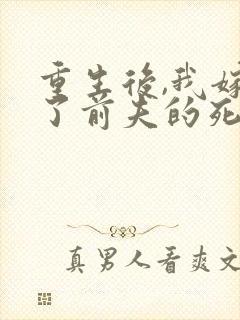 重生後,我嫁
了前夫的死
真男人看爽文